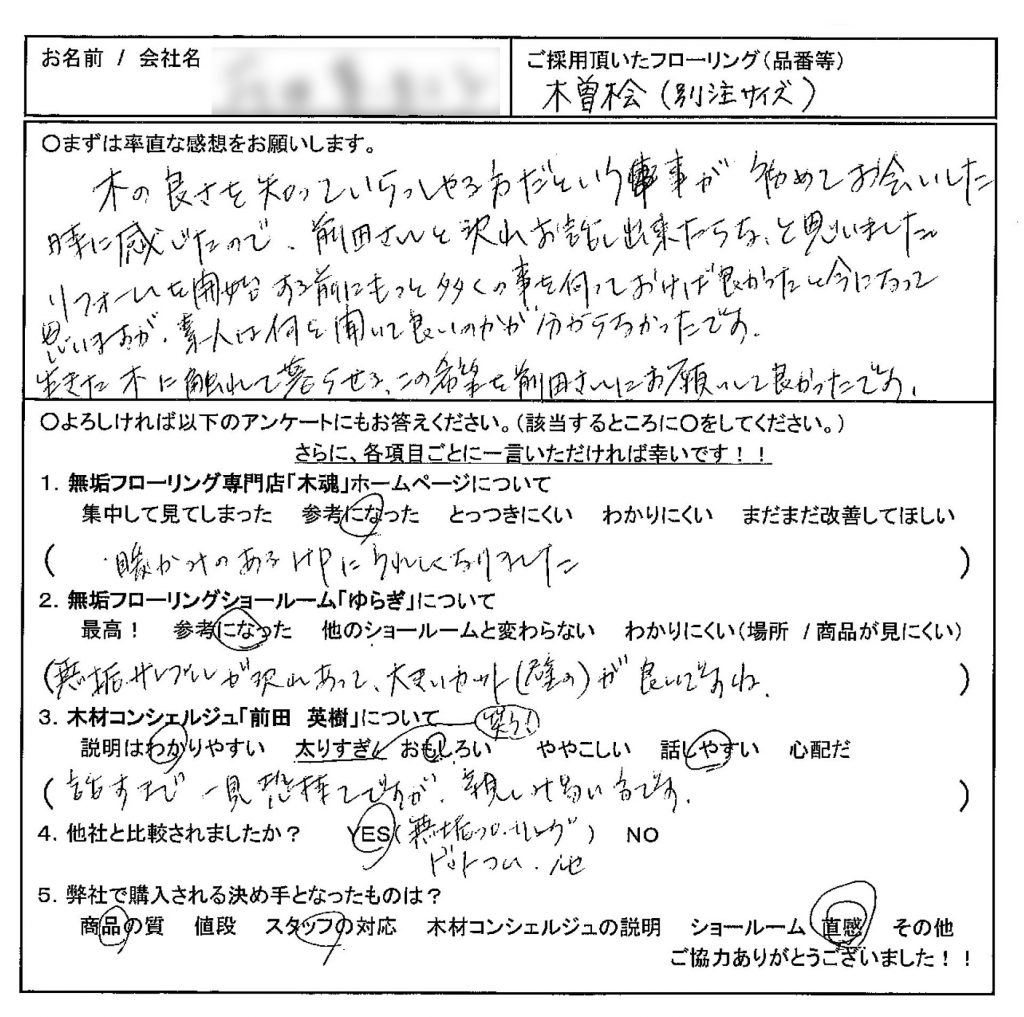 お名前 / 会社名
ご採用頂いたフローリング(品番等)
木曽桧(別注サイズ)
○まずは率直な感想をお願いします。
木の良さを知っていらっしゃる方だという事が初めてお会いした
時に感じたので、前田さんと沢山お話し出来たらな、と思いました。
リフォームを開始する前にもっと多くの事を伺っておけば良かったと今になって
思いますが、素人は何を聞いて良いのかが分からなかったです。
生きた木に触れて暮らせる、この希望を前田さんにお願いして良かったです。
○よろしければ以下のアンケートにもお答えください。(該当するところに○をしてください。)
さらに、各項目ごとに一言いただければ幸いです!!
1. 無垢フローリング専門店「木魂」ホームページについて
集中して見てしまった 参考になった とっつきにくい わかりにくい まだまだ改善してほしい
( 暖かみのあるHPにうれしくなりました )
2. 無垢フローリングショールーム「ゆらぎ」について
最高! 参考になった 他のショールームと変わらない わかりにくい(場所 /商品が見にくい)
(無垢サンプルが沢山あって、大きいカット(壁の)が良いですね。 )
3. 木材コンシェルジュ「前田 英樹」について 笑う!
説明はわかりやすい 太りすぎ おもしろい ややこしい 話しやすい 心配だ
( 話すまで一見恐持てですが、親しみ易い方です。 )
4. 他社と比較されましたか? YES(無垢フローリング ) NO
ドットコム・他
5. 弊社で購入される決め手となったものは?
商品の質 値段 スタッフの対応 木材コンシェルジュの説明 ショールーム 直感 その他
ご協力ありがとうございました!!